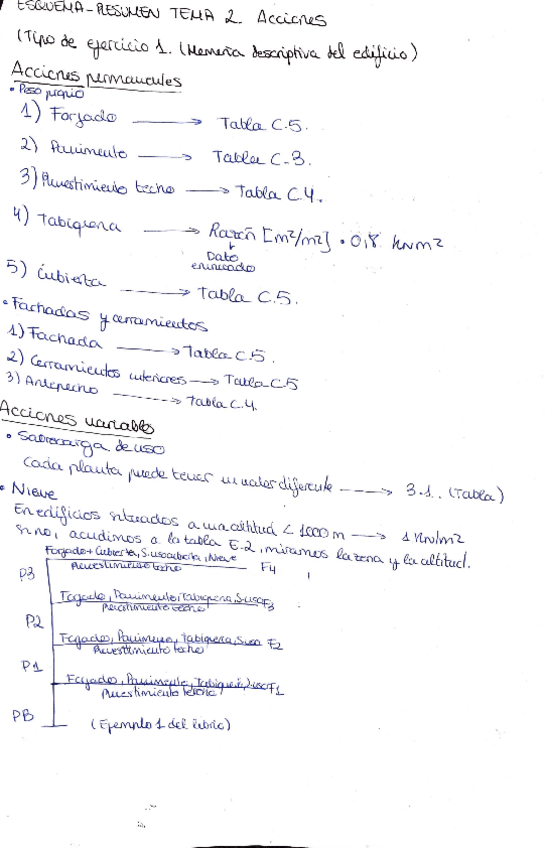 ESQUEMA-RESUMEN TEMA 2. Acciones
(Tipo de ejercicio 1. (Memoria descriptiva del edificio)
Acciones permanentes
• Peso propio
1) Forjado → Tabla C.5.
2) Pavimento → Tabla C-3.
3) Revestimiento techo → Tabla C.4.
4) Tabiquería → Razón [m²/m²] • 0,8 kNm²
Dato
enunciado
5) Cubierta → Tabla C.5.
• Fachadas y cerramientos
1) Fachada → Tabla C.5.
2) Cerramientos interiores → Tabla C5
3) Antepecho → Tabla C.4.
Acciones variables
• Sobrecarga de uso
Cada planta puede tener un valor diferente → 3.1.. (Tabla)
• Nieve
En edificios situados a una altitud < 1000 m → 1 kN/m2
si no, acudimos a la tabla E-2, miramos la zona y la altitud.
Forjado + Cubierta, S.uso cubierta, Nieve
Revestimiento techo F4
P3
Forjado, Pavimento, Tabiqueria, S.uso F3
Revestimiento techo
P2
Forjado, Pavimento, tabiqueria, S.uso F2
Revestimiento techo
P1
Forjado, Pavimento, Tabiquería, S.uso F1
Revestimiento techo
PB (Ejemplo 1 del libro)